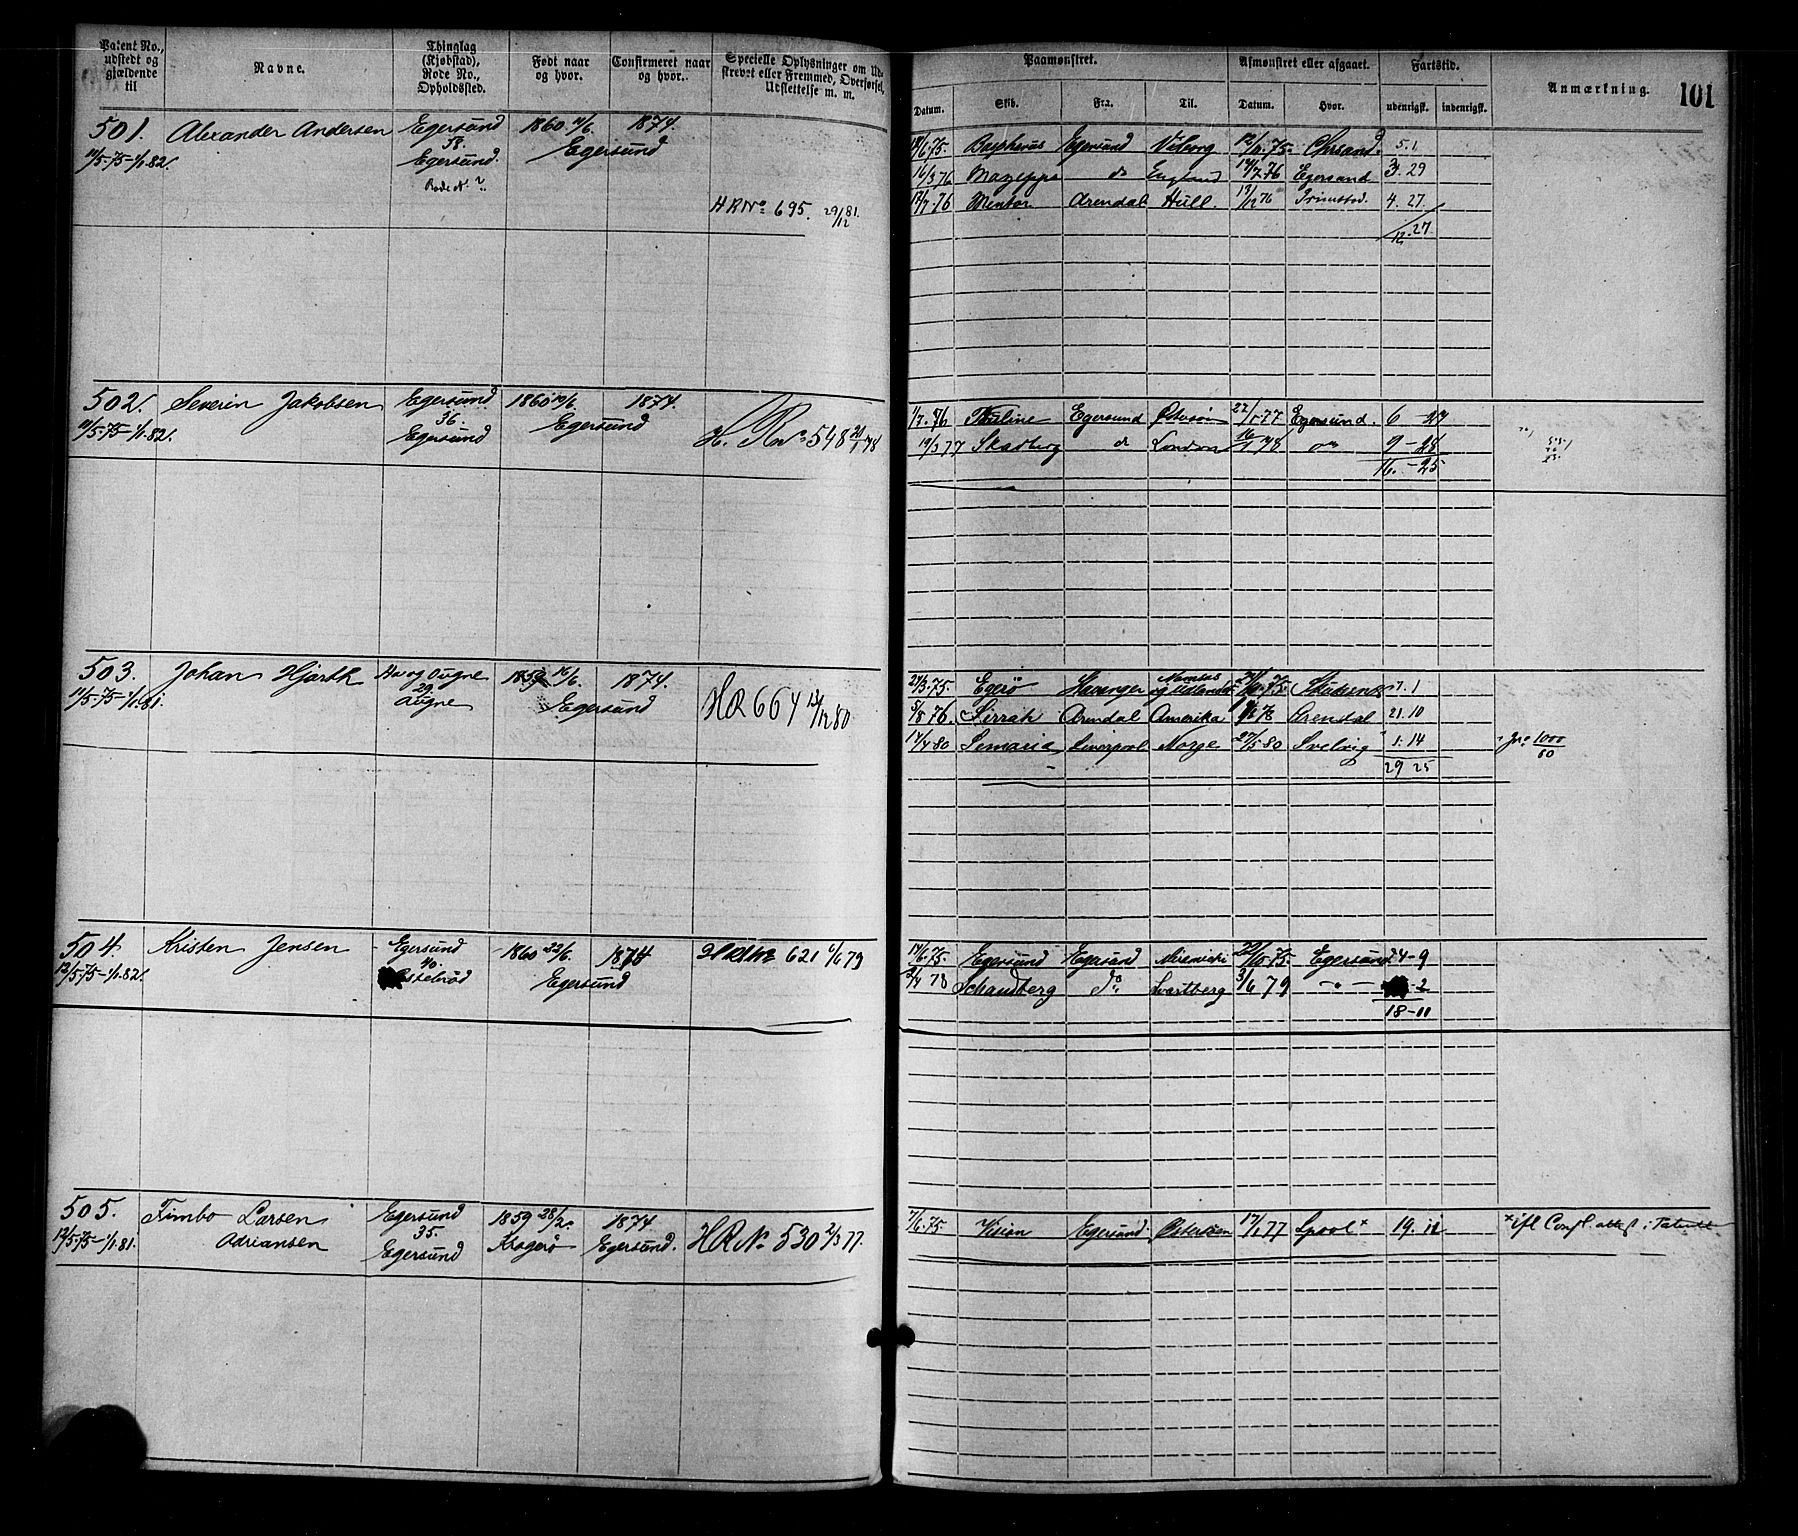 Patent No., udstedt og gjældende til
Navne.
Thinglag (Kjøbstad), Rode No., Opholdssted.
Født naar og hvor.
Confirmeret naar og hvor.
Specielle Oplysninger om Udskrevet eller Fremmed, Overførsel, Udslettelse m. m.
Paamønstret.
Afmønstret eller afgaaet.
Fartstid.
Anmærkning.
101
Datum. Skib. Fra. Til. Datum. Hvor. udenrigsk. indenrigsk.
501. Alexander Andersen Egersund 1860 11/6. 1874.
11/5.75-1/1.82. 38. Egersund. Egersund
Rode No ?
HR No 695. 29/12 81.
6.75. Egersund Viborg 12/11.75. Chrsand. 5.1
16/3 76 Mazeppa do England 14/7.76 Egersund 3.29
17/7 76 Mentor Arendal Hull. 13/12 76 Grimstad. 4.27.
12.27.
502. Severin Jakobsen Egersund 1860 10/6. 1874.
11/5.75-1/1.82. 36. Egersund Egersund
H. R No 548 78
1/7.76 Thuline Egersund Østersøn 22/1.77 Egersund. 6 - 27
19/3 77 Skadberg do London 16/1 78 do 9 - 28
16. - 25
503. Johan Hjorth Hav og Augne 1859 16/6. 1874.
11/5.75-1/1.81. 29 Augne Egersund
HR 664 13/12 80
24/3.75. Egerø Stavanger 75 7.1
5/8 76. Sirrah Arendal Amerika 78 Arendal 21.10
14/4 80 Semaria Liverpool Norge 27/5 80 Svelvig 1.14 1000/80
29 25
504. Kristen Jensen Egersund 1860 22/6. 1874
12/5.75-1/1.82. 40. Egersund
HR No 621 6/6 79
14/6.75. Egersund Egersund 22/10.75. Egersund 4-9
2/4 78 Schandberg do Svartberg 3/6 79 - " - - 2
18-11
505. Timbo Larsen Egersund 1859 28/2. 1874
12/5.75-1/1.81. Adriansen 35. Egersund Kragerø Egersund.
HR No 530 2/3 77.
7/6.75. Vision Egersund. Østersøen 17/1 77 Lpool + 19.11 + ifl. Confl. attest i Patentet